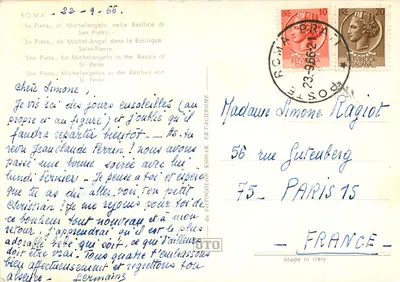 22-9-66.
ROMA -
"La Pietà„ di Michelangelo nella Basilica di
San Pietro -
"La Pietà„ de Michel-Angel dans la Basilique
Saint-Pierre -
"The Pietà„ by Michelangelo in the Basica of
St. Peter
"Die Pietà„ des Michelangelos in der Basilica von
St. Peter
Chère Simone.
Je vis ici des jours ensoleillés (au
propre et au figuré) et j'oublie qu'il
faudra repartir bientôt. - As-tu
revu Jean Claude Perrin? nous avons
passé une bonne soirée avec lui
lundi dernier. - Je pense à toi et espère
que tu as dû aller voir ton petit
Christian! Je me réjouis pour toi de
ce bonheur tout nouveau et à mon
retour. J'apprendrai qu'il est le plus
adorable bébé qui soit, ce qui d'ailleurs
doit être vrai. Tous quatre t'embrassons
bien affectueusement et regrettons ton
absence. Germaine
KODACOLOR KODAK EKTACHROME
OTO
Made in Italy
10
20
ROMA
POSTE
23-9 66-21
Madame Simone Ragiot
56 rue Gutenberg
75 - PARIS 15
- FRANCE -